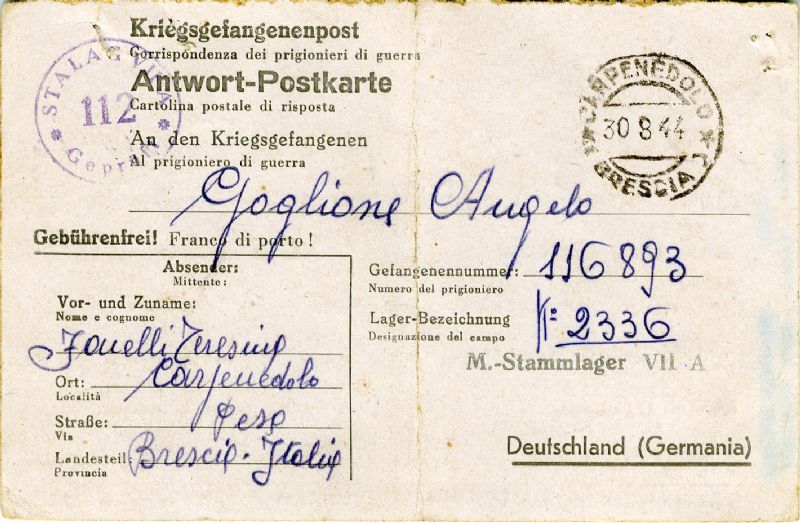 Kriegsgefangenenpost
Corrispondenza dei prigionieri di guerra
Antwort-Postkarte
Cartolina postale di risposta
An den Kriegsgefangenen
Al prigioniero di guerra
STALAG VII A
112
Geprüft
CARPENEDOLO
30 8 44
BRESCIA
Goglione Angelo
Gebührenfrei! Franco di porto!
Absender:
Mittente:
Vor- und Zuname:
Nome e cognome
Fanelli Teresina
Ort: Carpenedolo
Località
Straße: Pesa
Via
Landesteil: Brescia - Italia
Provincia
Gefangenennummer: 116893
Numero del prigioniero
Lager-Bezeichnung 2336
Designazione del campo
M.-Stammlager VII A
Deutschland (Germania)